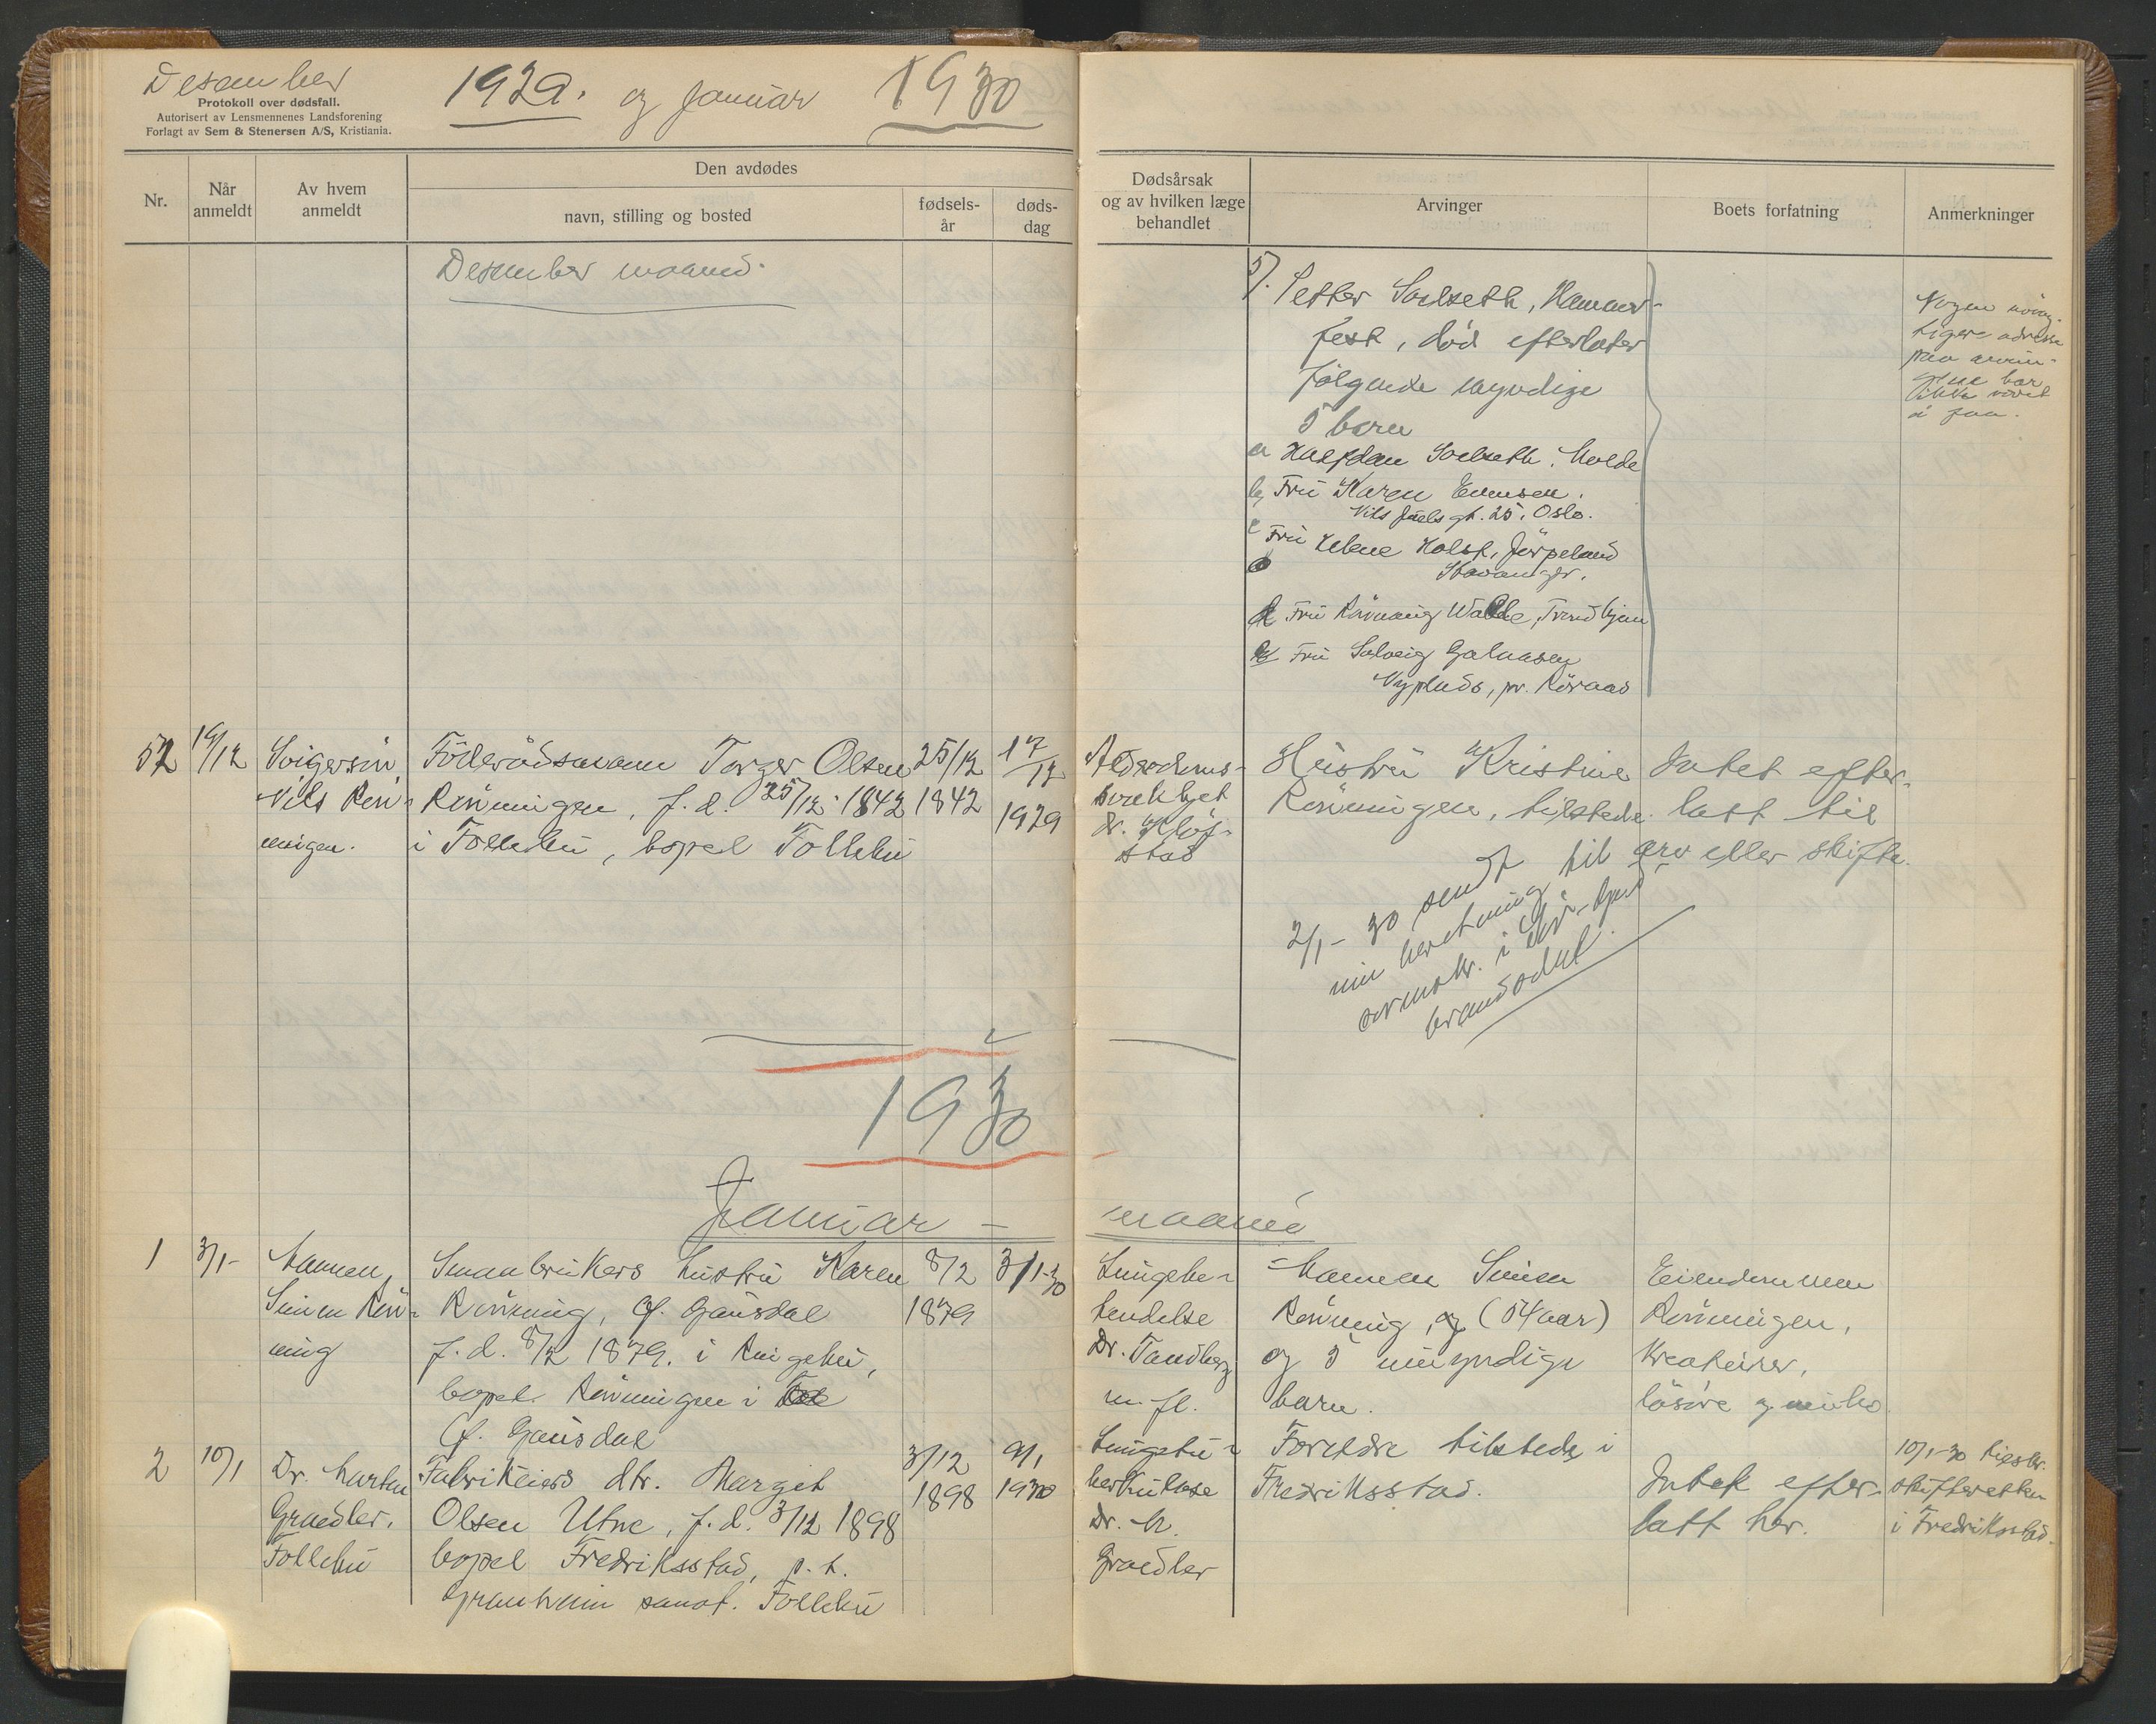 Desember
1929. og Januar 1930
Protokoll over dødsfall.
Autorisert av Lensmennenes Landsforening
Forlagt av Sem & Stenersen A/S, Kristiania.
Nr.
Når anmeldt
Av hvem anmeldt
Den avdødes
navn, stilling og bosted
fødsels-
år
døds-
dag
Dødsårsak
og av hvilken læge
behandlet
Arvinger
Boets forfatning
Anmerkninger
Desember maaned.
5). Petter Solseth, Hammer-
fest, død efterlater
følgende myndige
5 barn
a Halfdan Solseth, Molde
b, Fru Karen Evensen.
Nils Juels gt. 25, Oslo.
c Fru Helene Holst, Jørpeland
Stavanger.
d Fru Rønnaug Walle, Trondhjem
e Fru Solveig Galaasen
Nyplads, pr. Røraas
Nogen nöiag-
tigere adresse
paa arvin-
gene har
ikke været
å faa.
52
19/12
Svigersøn
Nils Røn-
ningen.
Föderådsmann Torger Olsen
Rønningen, f. d. 25/12 1842
i Follebu, bopel Follebu
25/12
1842
17/12
1929
Alderdoms-
svakhet
dr. Kløf-
stad
Hustru Kristine
Rønningen, tilstede.
Intet efter-
latt til
arv eller skifte.
2/1- 30 sendt til
min beretning
i
1930
Januar - maaned
1
3/1-
Mannen,
Simen Røn-
ning
Smaabrukers hustru Karen
Rønning, Ø. Gausdal
f. d. 8/2 1879. i Ringebu,
bopel. Rønningen i
Ø. Gausdal
8/2
1879
3/1-30
Lungebe-
tendelse
Dr. Tandberg
m. fl.
Mannen Simen
Rønning, og (54 aar)
og 5 umyndige
barn.
Eiendommen
Rønningen,
Kreaturer,
løsøre og innbo
2
10/1
Dr. Morten
Grædler.
Follebu
Fabrikeiers dtr. Margit
Olsen Utne, f. d. 3/12 1898
bopel Fredriksstad, p. t.
Granheim sanat. Follebu
3/12
1898
9/1
1930
Lungetu-
berkulose
Dr. M.
Grædler
Foreldre tilstede i
Fredriksstad.
Intet efter-
latt her.
10/1-30
skifteretten
i Fredriksstad.